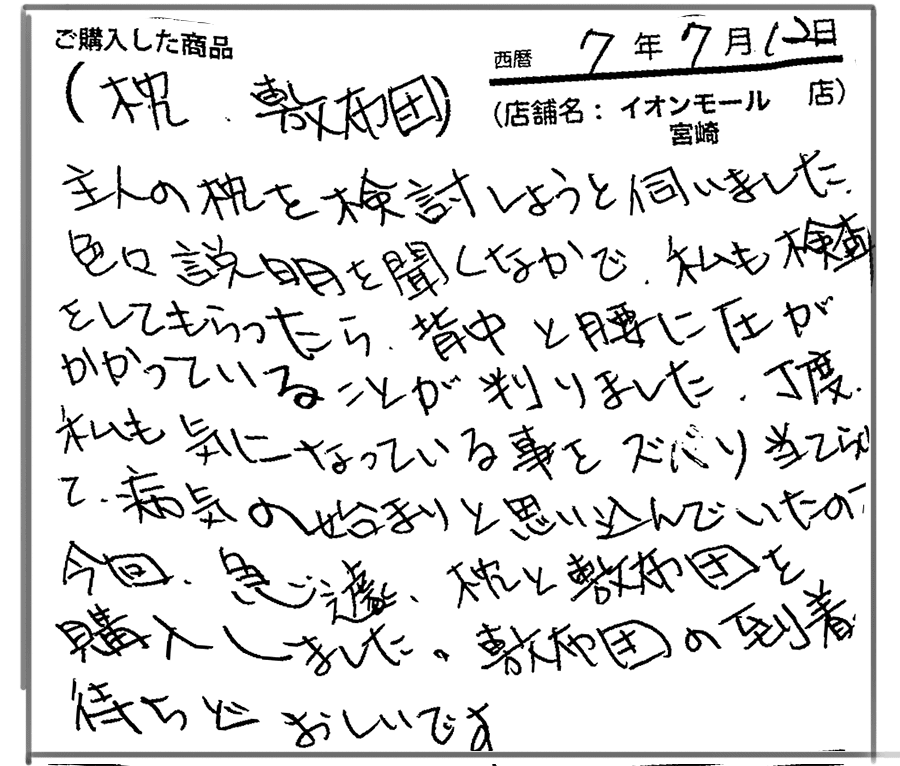 ご購入した商品
西暦 7年7月12日
(枕、敷布団)
(店舗名：イオンモール宮崎 店)
主人の枕を検討しようと伺いました。
色々説明を聞くなかで、私も検査
をしてもらったら、背中と腰に圧が
かかっていることが判りました。丁度、
私も気になっている事をズバリ当てられ
て、病気の始まりと思い込んでいたので
今回、急遽、枕と敷布団を
購入しました。敷布団の到着
待ちどおしいです